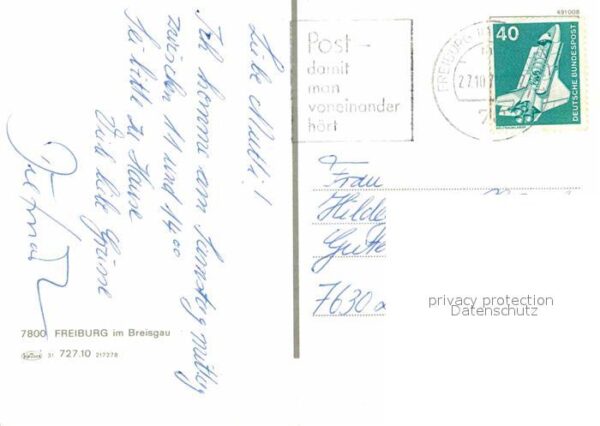 Liebe Mutti!
Ich komme am Samstag mittag
zwischen 11 und 14 00
Sei bitte zu Hause
Viele liebe Grüsse
Dietmar
7800 FREIBURG im Breisgau
31 727.10 217278
Post -
damit
man
voneinander
hört
FREIBURG
27.10.7
491008
40
DEUTSCHE BUNDESPOST
Frau
Hilde
7630
privacy protection
Datenschutz